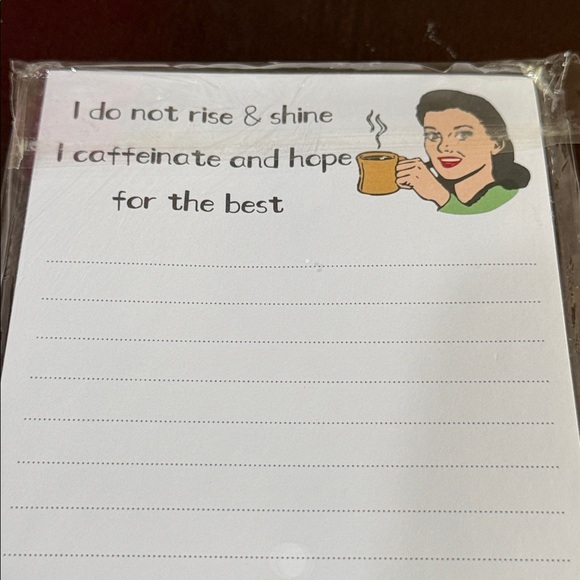 I do not rise & shine
I caffeinate and hope
for the best